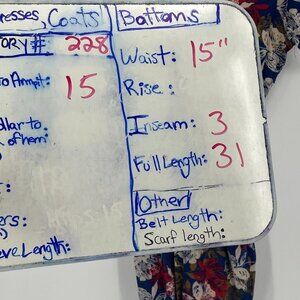 resses, Coats
TORY # 228
to Armpit: 15
llar to:
of hem)
:
ers:
eve Length:
Bottoms
Waist: 15"
Rise:
Inseam: 3
Full Length: 31
Other
Belt Length:
Scarf length: